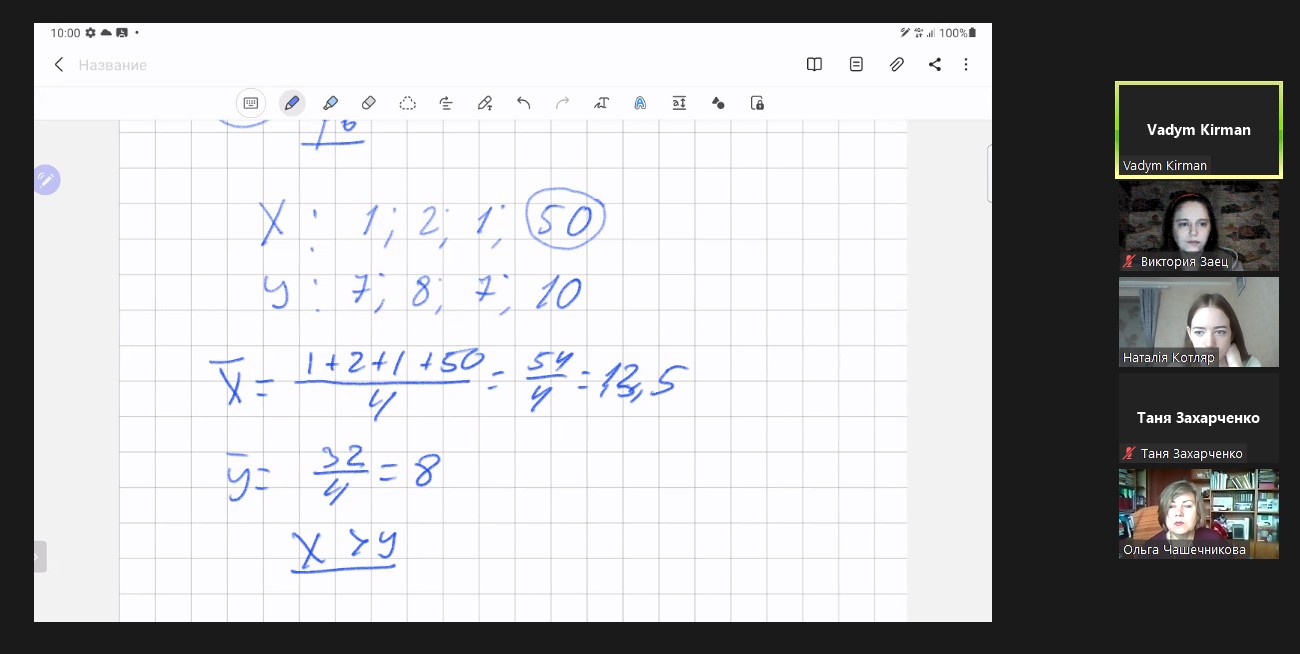 10:00
100%
Название
X : 1; 2; 1; 50
y : 7; 8; 7; 10
X̅ = (1+2+1+50)/4 = 54/4 = 13,5
y̅ = 32/4 = 8
X > y
Vadym Kirman
Vadym Kirman
Виктория Заец
Наталія Котляр
Таня Захарченко
Таня Захарченко
Ольга Чашечникова